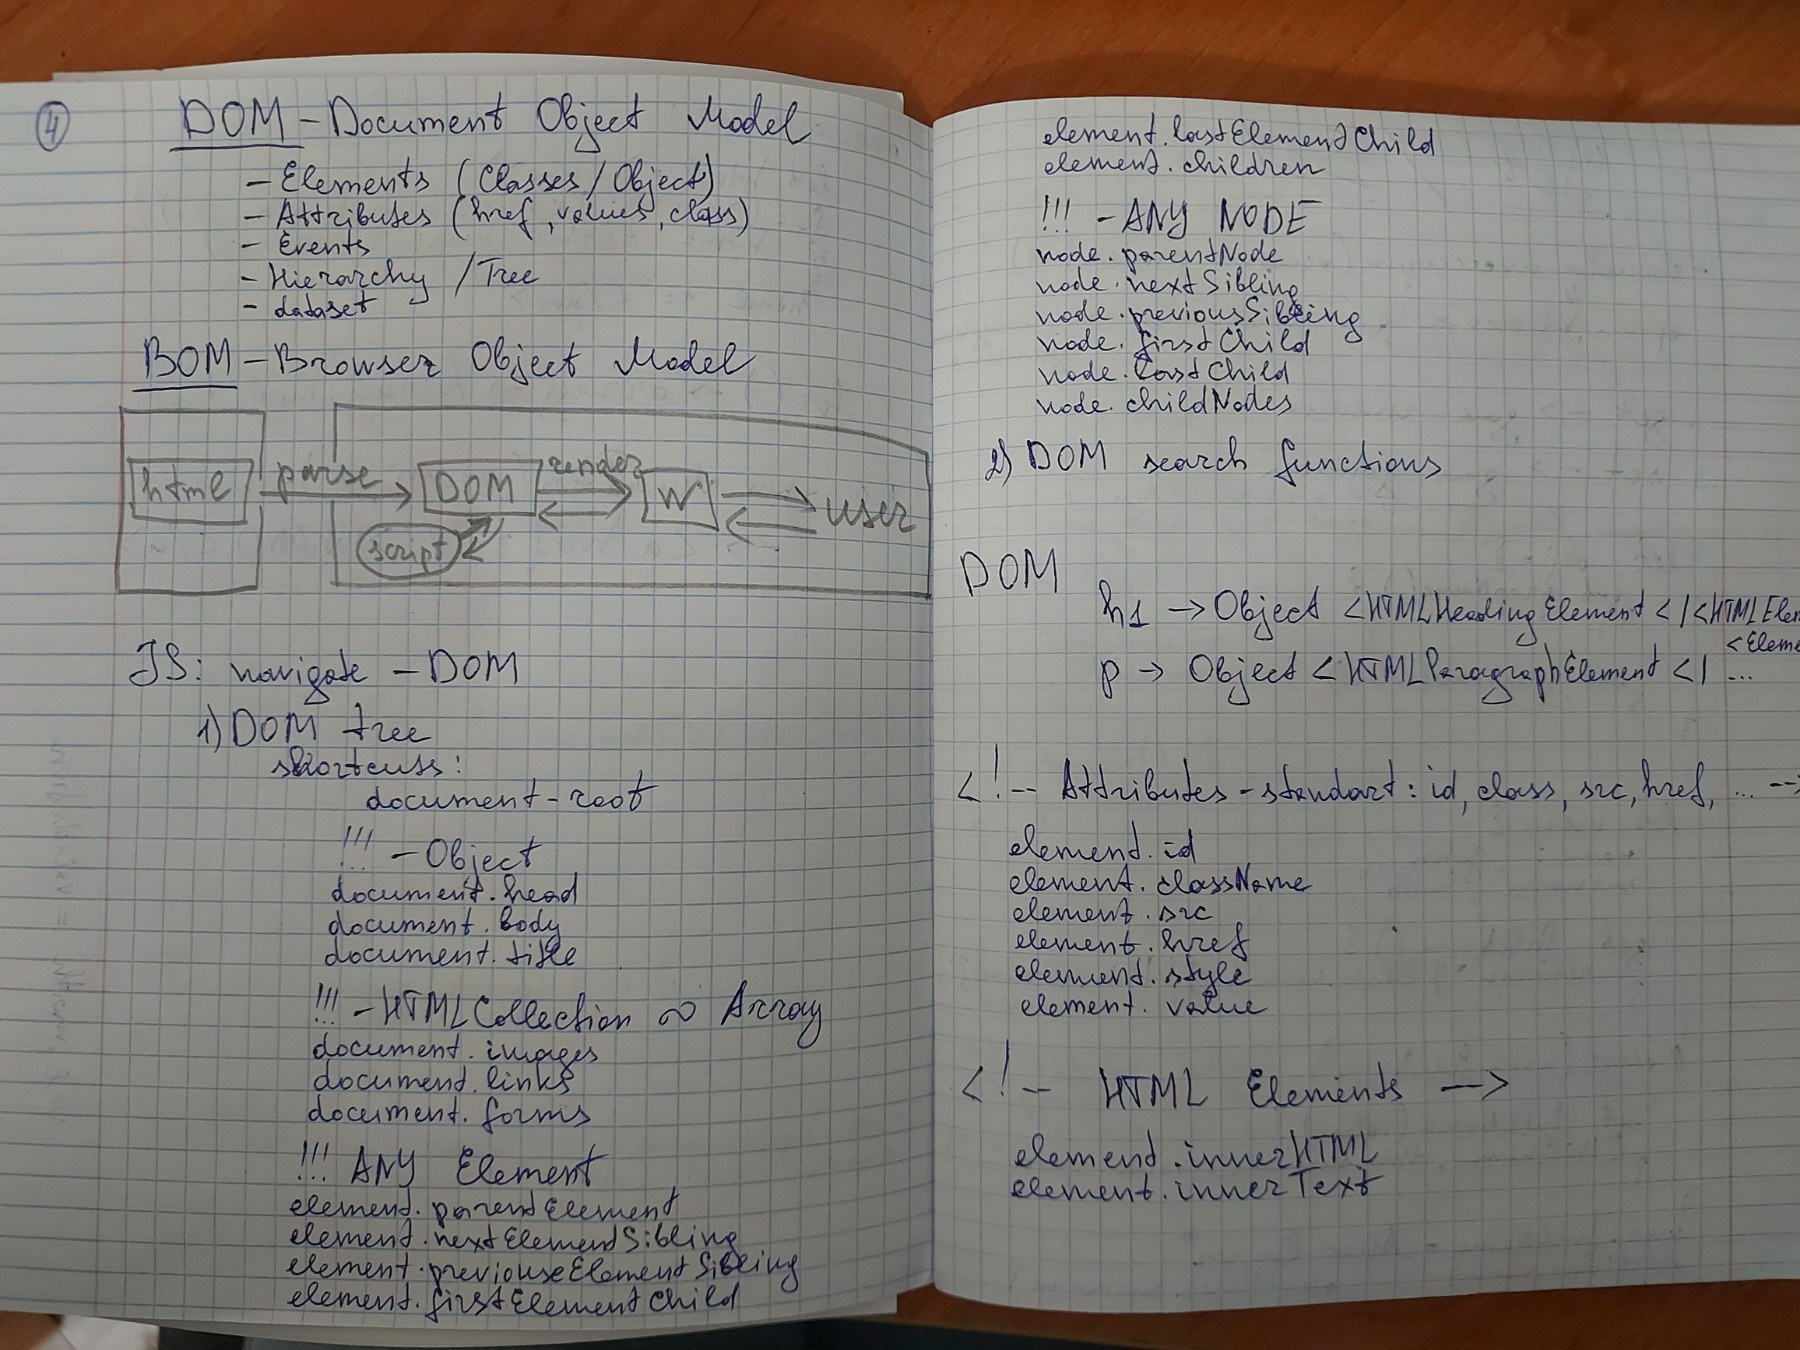 4
DOM - Document Object Model
- Elements (Classes/Object)
- Attributes (href, values, class)
- Events
- Hierarchy / Tree
- dataset
BOM - Browser Object Model
html parse DOM render W user
script
JS: navigate - DOM
1) DOM tree
shortcuts:
document - root
!!! - Object
document.head
document.body
document.title
!!! - HTMLCollection ∾ Array
document.images
document.links
document.forms
!!! ANY Element
element.parentElement
element.nextElementSibling
element.previouseElementSibling
element.firstElementChild
element.lastElementChild
element.children
!!! - ANY NODE
node.parentNode
node.nextSibling
node.previousSibling
node.firstChild
node.lastChild
node.childNodes
2) DOM search functions
DOM
h1 → Object <HTMLHeadingElement <|<HTMLElem
<Eleme
p → Object <HTMLParagraphElement <| ...
<!-- Attributes - standart: id, class, src, href, ... -->
element.id
element.className
element.src
element.href
element.style
element.value
<!-- HTML Elements -->
element.innerHTML
element.innerText